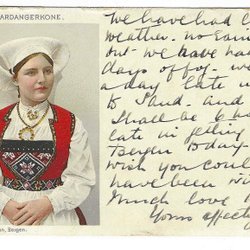 ARDANGERKONE.
We have had l
weather. no rain
but we have ha
days of fog. we
a day late in
to Sund. and
Shall be 6 h
late in getting
Bergen today
wish you coul
have been wi
Much love f
Yours affect
n, Bergen.